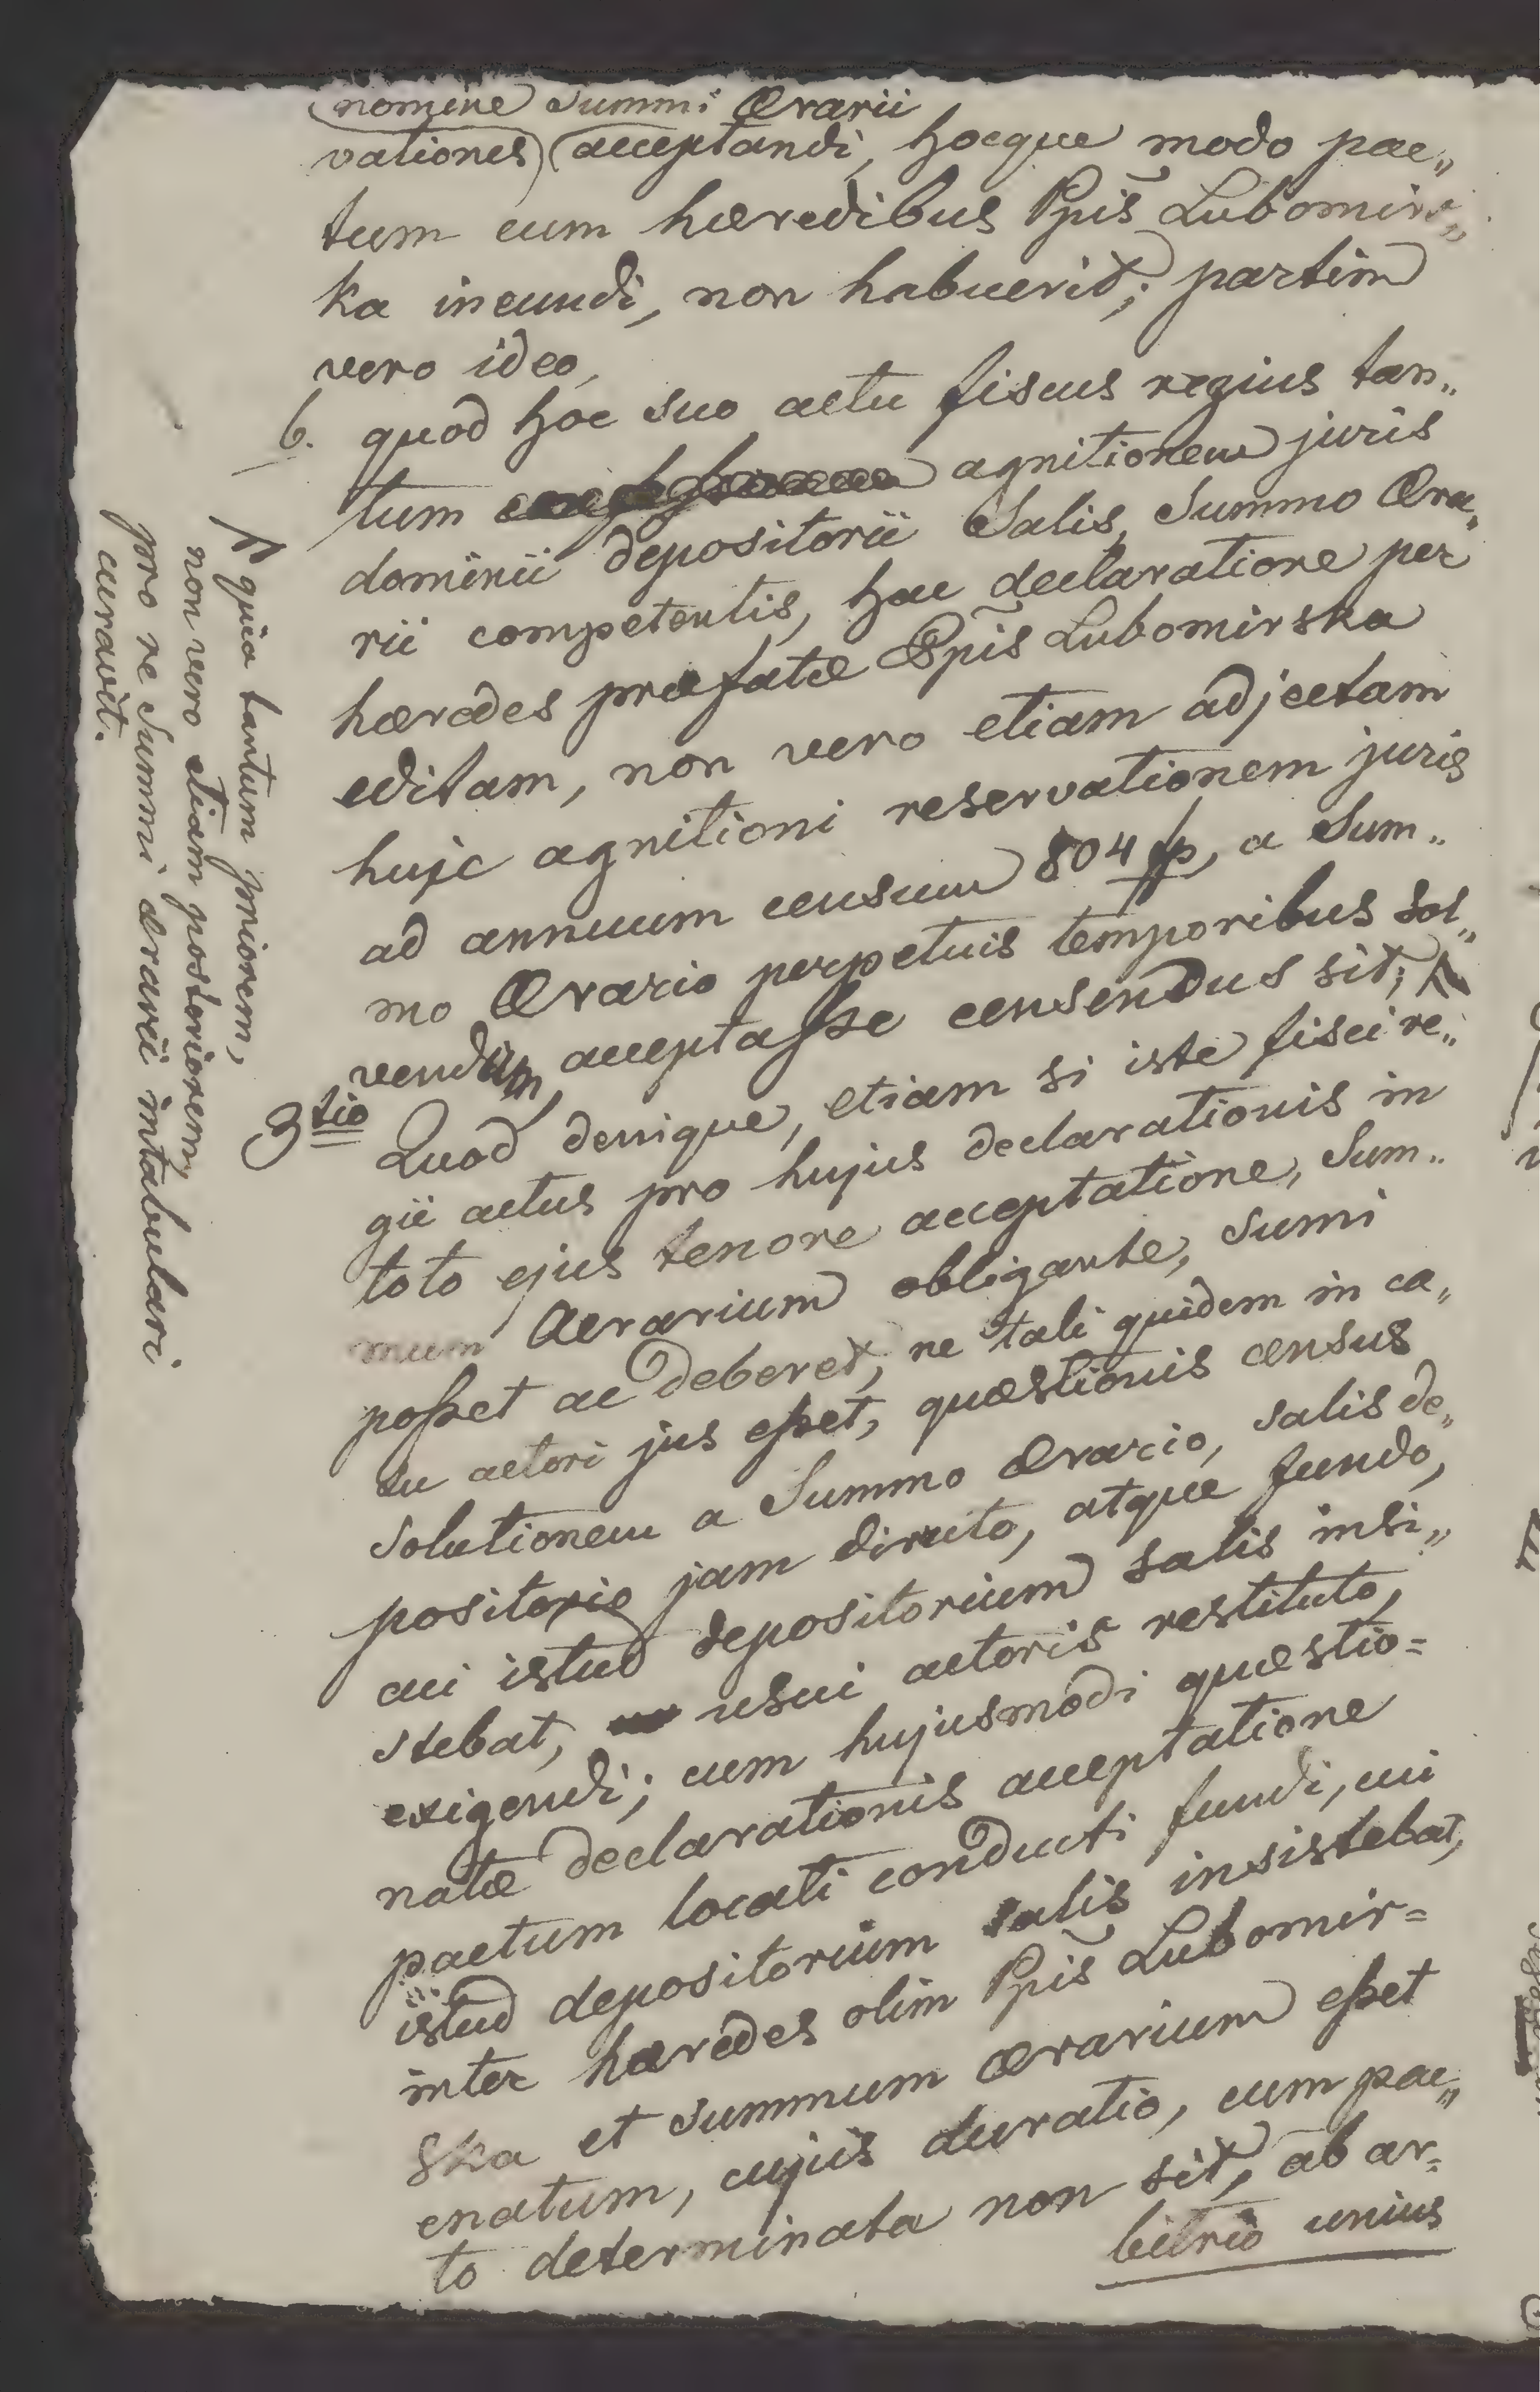 nomine Summi Ærarii
vationes acceptandi, hocque modo pac„
tum cum hæredibus Ppis̃ Lubomirs„
ka ineundi, non habuerit; partim
vero ideo,
b. quod hoc suo actu fiscus regius tan„
tum agnitionem juris
dominii depositorii Salis, Summo Æra„
rii competentis, hac declaratione per
hæredes præfatæ Ppis̃ Lubomirska
editam, non vero etiam adjectam
huic agnitioni reservationem juris
ad annuum censum 804 fp, a Sum„
mo Ærario perpetuis temporibus sol„
vendum acceptaſse censendus sit;
3tio Quod denique, etiam si iste fisci re„
gii actus pro hujus declarationis in
toto ejus tenore acceptatione, Sum„
mum Aerarium obligante, sumi
poſset ac deberet, ne tali quidem in ca„
su actori jus eſset, quæstionis census
solutionem a Summo Ærario, salis de„
positorio jam diruto, atque fundo,
cui istud depositorium salis insi„
stebat, usui actoris restituto,
exigendi; cum hujusmodi quæstio=
natæ declarationis acceptatione
pactum locati conducti fundi, cui
istud depositorium salis insistebat,
inter hæredes olim Ppis̃ Lubomir=
ska et summum ærarium eſset
enatum, cujus duratio, cum pac„
to determinata non sit, ab ar=
bitrio unius
quia tantum priorem,
non vero etiam posteriorem,
pro re Summi ærarii intabulari
curavit.